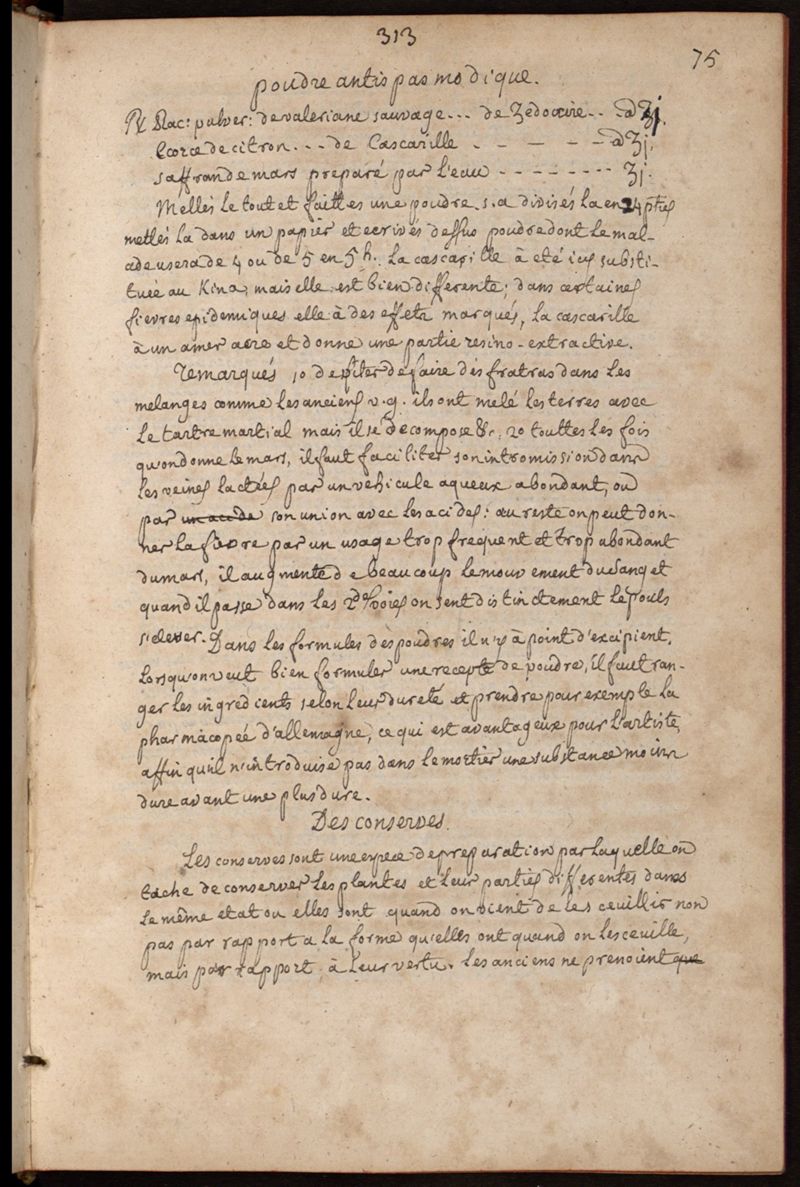 313
75
poudre antispasmodique.
℞ Rac: pulver: de valeriane sauvage... de Zedoaire.. ā ʒj.
Ecorce de citron... de Cascarille - - - - - ā ʒj.
saffran de mars preparé par l'eau - - - - - - - - ʒj.
Mellés le tout et faittes une poudre. s.a divisés la en 24 pties
mettés la dans un papier et ecrivés dessus poudre dont le mal-
ade usera de 4 ou de 5 en 5 h. La cascarille à eté icy substi-
tuée au Kina, mais elle est bien differente; dans certaines
fievres epidemiques elle à des effets marqués, la cascarille
à un amer acre et donne une partie resino-extractive.
remarqués 1o d'eviter de faire dés fratras dans les
melanges comme les anciens v.g. ils ont melé les terres avec
le tartre martial mais il se decompose &c. 2o touttes les fois
qu'on donne le mars, il faut faciliter son intromission dans
les veines lactées par un vehicule aqueux abondant, ou
par un acide son union avec les acides: au reste on peut don-
ner la fievre par un usage trop frequent et trop abondant
du mars, il augmente de beaucoup le mouvement du sang et
quand il passe dans les 2des voies on sent distinctement le pouls
s'elever. Dans les formules dés poudres il n'y à point d'excipient,
lorsqu'on veut bien formuler une recepte de poudre, il faut ran-
ger les ingredients selon leur dureté et prendre pour exemple la
pharmacopée d'allemagne, ce qui est avantageux pour l'artiste,
affin qu'il n'introduise pas dans le mortier une substance moins
dure avant une plus dure.
Des conserves.
Les conserves sont une espece de preparation par laquelle on
tache de conserver les plantes et leur partiés differentes dans
le même etat ou elles sont quand on vient de les ceuillir non
pas par rapport a la forme qu'elles ont quand on les ceuille,
mais par rapport à leur vertu. Les anciens ne prenoient que